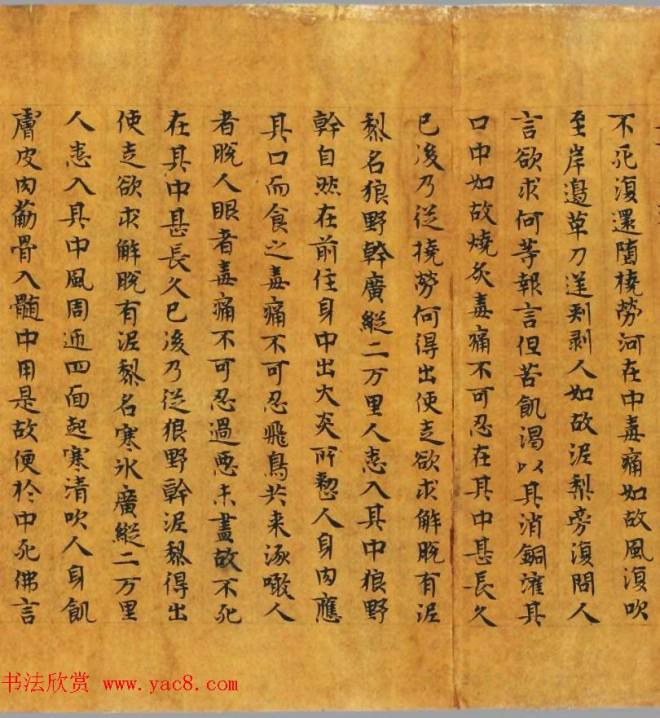 不死復還墮橈勞河在中毒痛如故風復吹
至岸邊草刀逆刾剥人如故泥梨旁復問人
言欲求何等報言但苦飢渴以其消銅灌其
口中如故燒炙毒痛不可忍在其中甚長久
已後乃從橈勞河得出便走欲求解脫有泥
黎名狼野幹廣縱二万里人悉入其中狼野
幹自然在前住身中出大炎所𢡱人身肉應
其口而食之毒痛不可忍飛鳥共来涿噉人
者脫人眼者毒痛不可忍過惡未盡故不死
在其中甚長久已後乃從狼野幹泥黎得出
便走欲求解脫有泥黎名寒氷廣縱二万里
人悉入其中風周迊四面起寒清吹人身飢
膚皮肉葪骨入髓中用是故便於中死佛言
书法欣赏 www.yac8.com